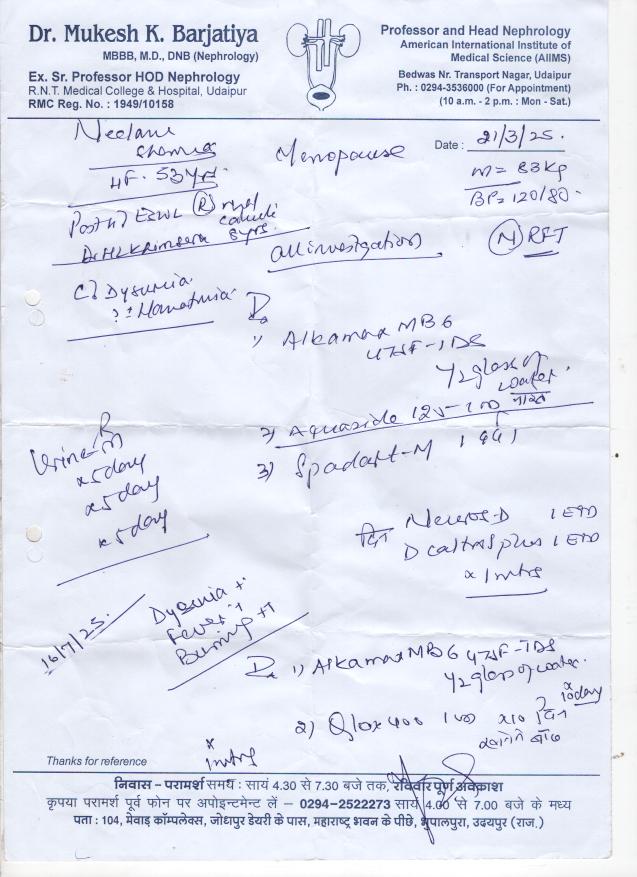 Dr. Mukesh K. Barjatiya
MBBB, M.D., DNB (Nephrology)
Ex. Sr. Professor HOD Nephrology
R.N.T. Medical College & Hospital, Udaipur
RMC Reg. No. : 1949/10158
Professor and Head Nephrology
American International Institute of
Medical Science (AIIMS)
Bedwas Nr. Transport Nagar, Udaipur
Ph. : 0294-3536000 (For Appointment)
(10 a.m. - 2 p.m. : Mon - Sat.)
Neelam
Menopause
Date : 21/3/25.
53 yrs.
m = 83 kg
BP = 120/80.
Post ESWL (R) renal calculi
8 yrs.
all investigation
(N) RFT
Dysuria
?? Hematuria
1) Alkamax MB6
1/2 glass of
water
2) Aquazide 12.5 - 1 OD
3) Spadart-M
Urine R/M
x 5 day
x 5 day
x 5 day
Neuros-D
D caltras plus
x 1 mths
16/7/25.
Dysuria +
Fever +
Burning ++
1) Alkamax MB6
1/2 glass of water
x 10 day
2) Qlox 400
x 10 दिन
खाने के बाद
x
1 mths
Thanks for reference
निवास - परामर्श समय : सायं 4.30 से 7.30 बजे तक, रविवार पूर्ण अवकाश
कृपया परामर्श पूर्व फोन पर अपोइन्टमेन्ट लें - 0294-2522273 सायं 4.00 से 7.00 बजे के मध्य
पता : 104, मेवाड़ कॉम्पलेक्स, जोधपुर डेयरी के पास, महाराष्ट्र भवन के पीछे, भुपालपुरा, उदयपुर (राज.)